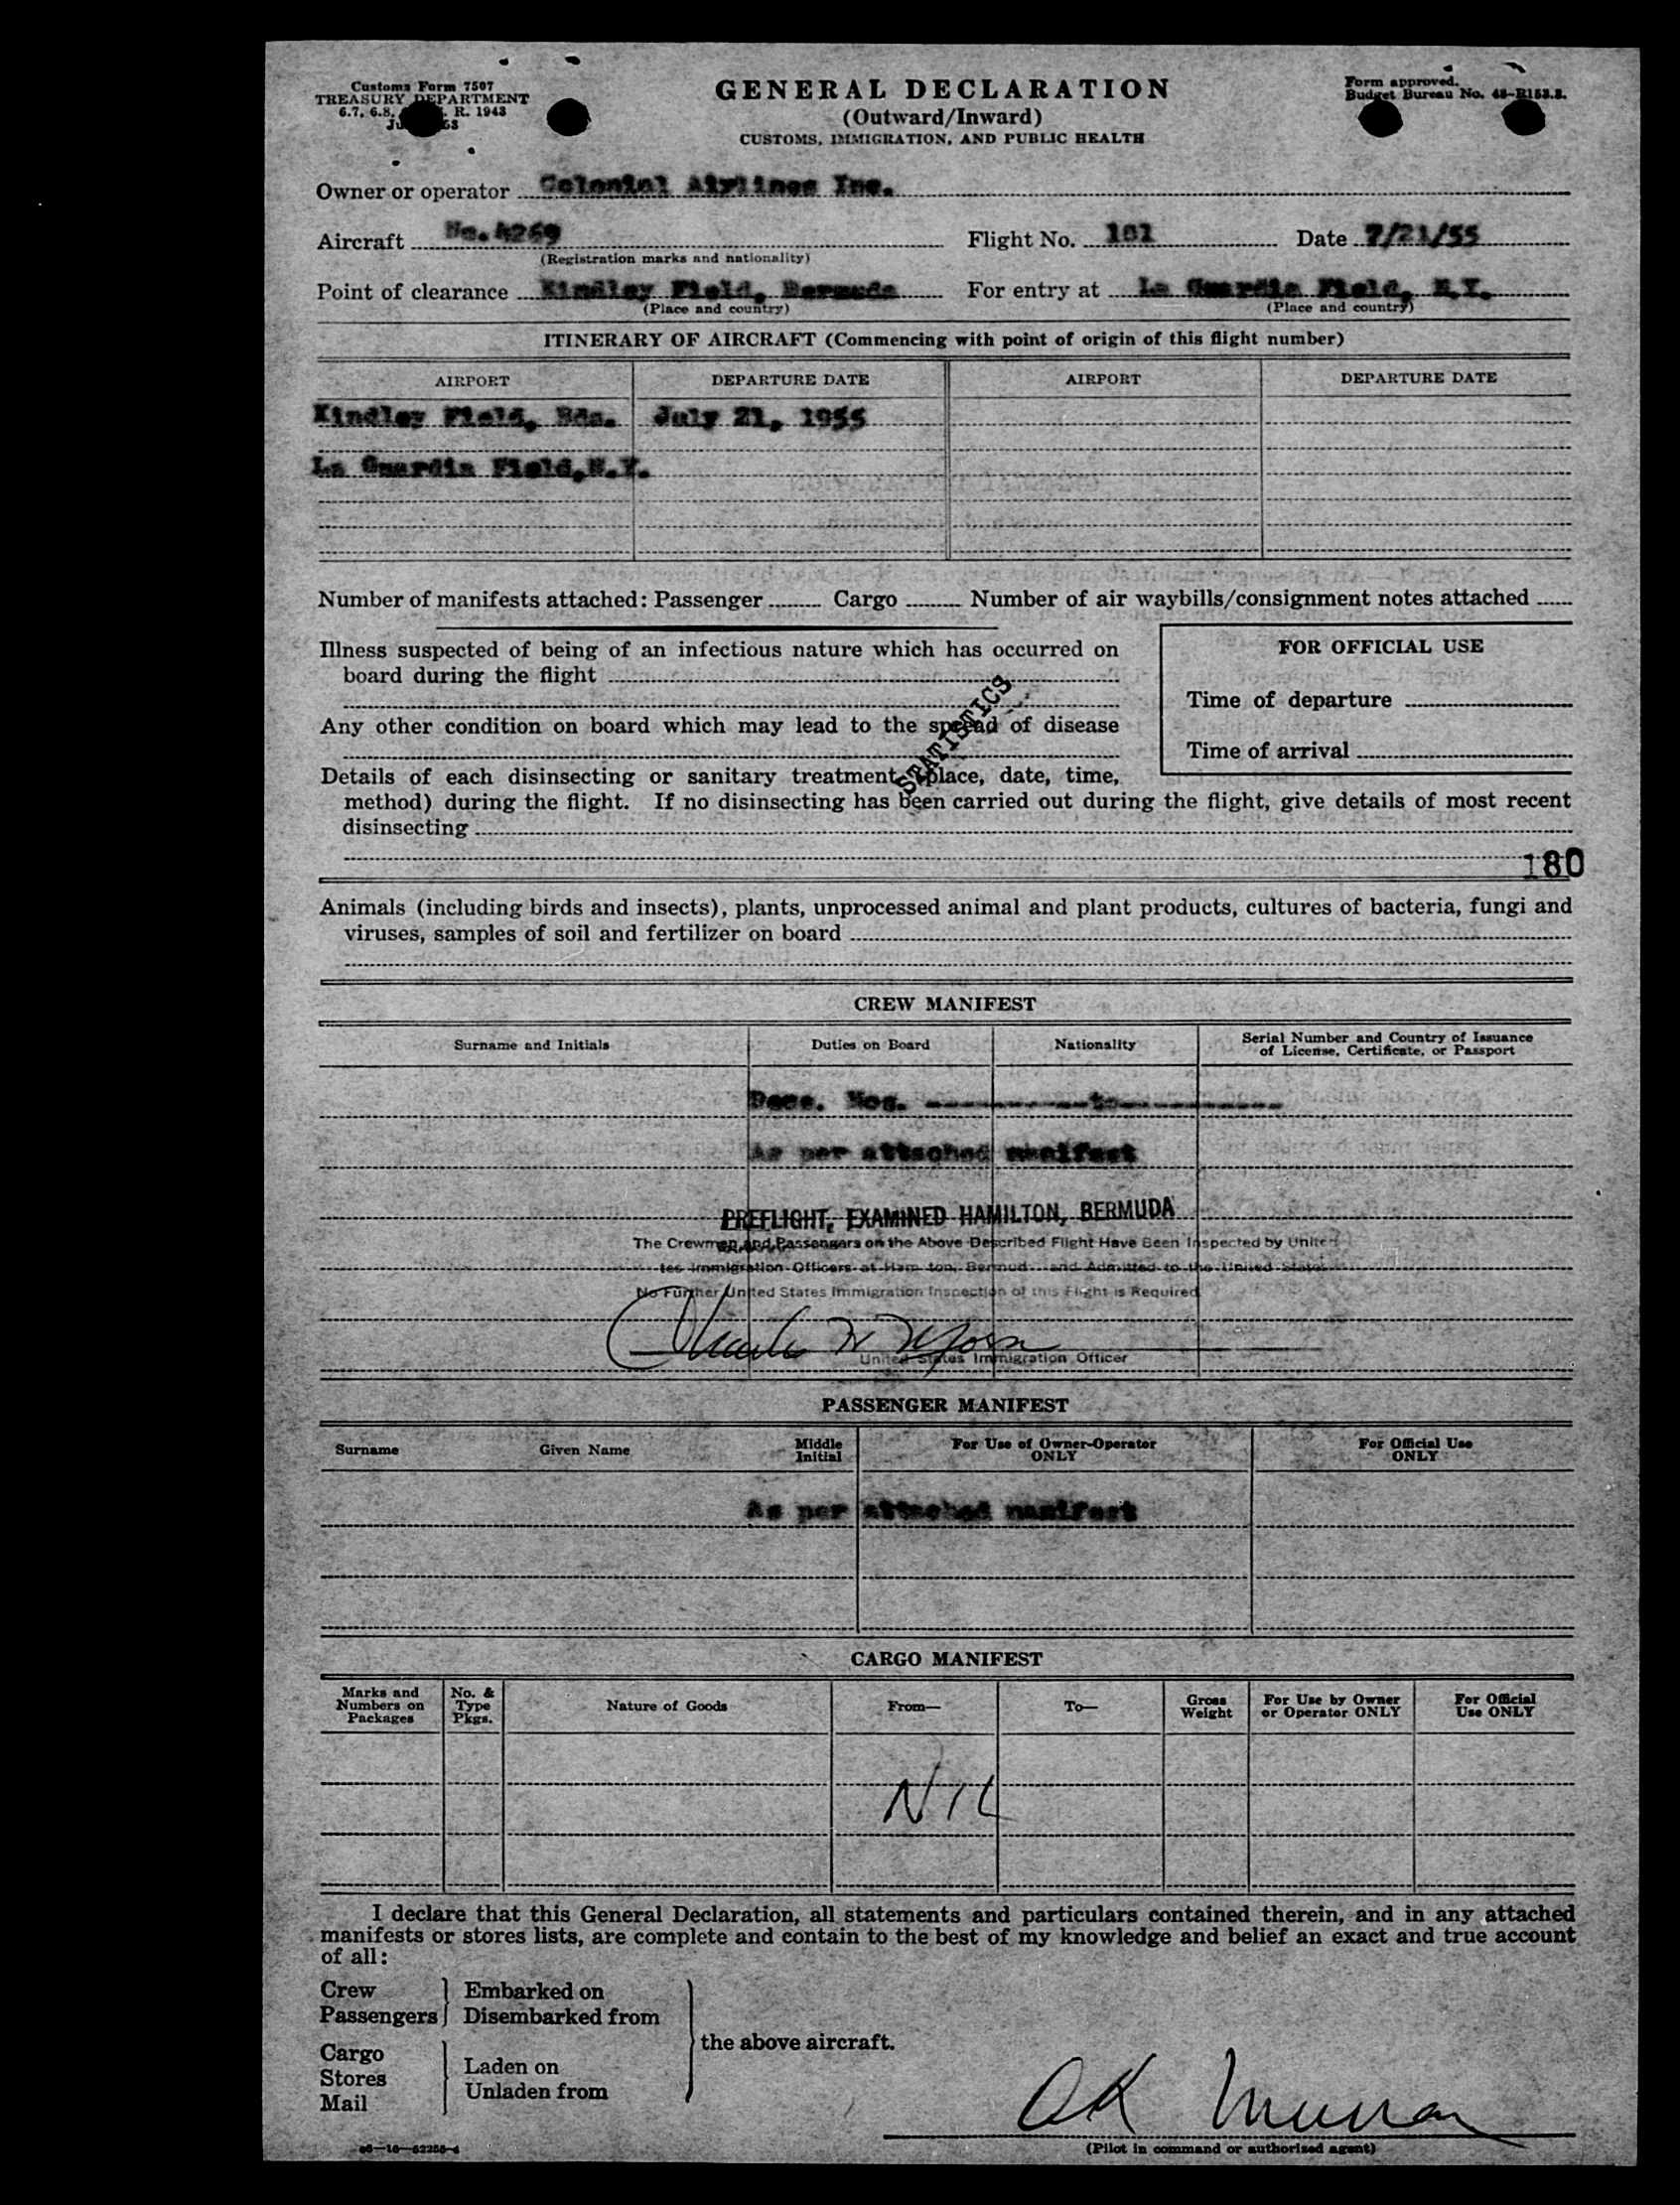 Customs Form 7507
TREASURY DEPARTMENT
6.7, 6.8, R. 1943
GENERAL DECLARATION
(Outward/Inward)
CUSTOMS, IMMIGRATION, AND PUBLIC HEALTH
Form approved.
Budget Bureau No. 48-R153.3.
Owner or operator Colonial Airlines Inc.
Aircraft No. 4269 Flight No. 101 Date 7/21/55
(Registration marks and nationality)
Point of clearance Kindley Field, Bermuda For entry at La Guardia Field, N.Y.
(Place and country) (Place and country)
ITINERARY OF AIRCRAFT (Commencing with point of origin of this flight number)
AIRPORT DEPARTURE DATE AIRPORT DEPARTURE DATE
Kindley Field, Bda. July 21, 1955
La Guardia Field,N.Y.
Number of manifests attached: Passenger Cargo Number of air waybills/consignment notes attached
Illness suspected of being of an infectious nature which has occurred on
board during the flight
FOR OFFICIAL USE
Time of departure
Time of arrival
STATISTICS
Any other condition on board which may lead to the spread of disease
Details of each disinsecting or sanitary treatment (place, date, time,
method) during the flight. If no disinsecting has been carried out during the flight, give details of most recent
disinsecting
180
Animals (including birds and insects), plants, unprocessed animal and plant products, cultures of bacteria, fungi and
viruses, samples of soil and fertilizer on board
CREW MANIFEST
Surname and Initials Duties on Board Nationality Serial Number and Country of Issuance
of License, Certificate, or Passport
Decs. Nos. ------------to------------
As per attached manifest
PREFLIGHT, EXAMINED HAMILTON, BERMUDA
The Crewmen and Passengers on the Above Described Flight Have Been Inspected by United
tes Immigration Officers at Ham ton, Bermud and Admitted to the United States
No Further United States Immigration Inspection of this Flight is Required
United States Immigration Officer
PASSENGER MANIFEST
Surname Given Name Middle
Initial For Use of Owner-Operator
ONLY For Official Use
ONLY
As per attached manifest
CARGO MANIFEST
Marks and
Numbers on
Packages No. &
Type
Pkgs. Nature of Goods From— To— Gross
Weight For Use by Owner
or Operator ONLY For Official
Use ONLY
NIL
I declare that this General Declaration, all statements and particulars contained therein, and in any attached
manifests or stores lists, are complete and contain to the best of my knowledge and belief an exact and true account
of all:
Crew Embarked on
Passengers Disembarked from
the above aircraft.
Cargo
Stores Laden on
Mail Unladen from
(Pilot in command or authorized agent)